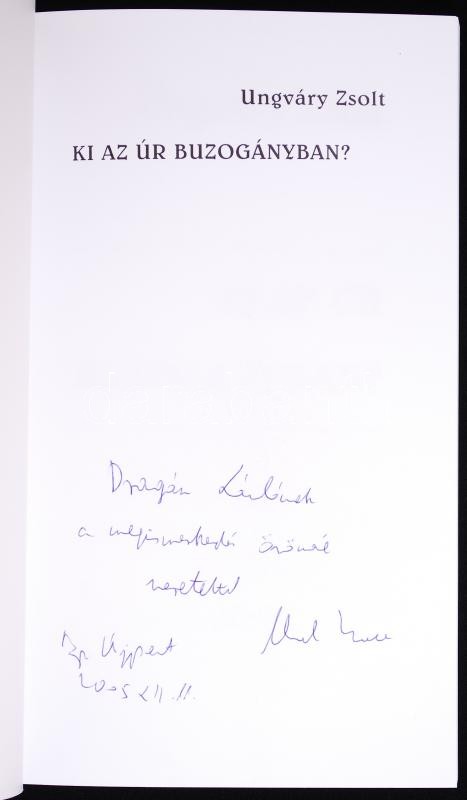 Ungváry Zsolt
KI AZ ÚR BUZOGÁNYBAN?
Dragán Lászlónak
a megismerkedés örömére
szeretettel
Bp. Újpest
2005 XII. 11.